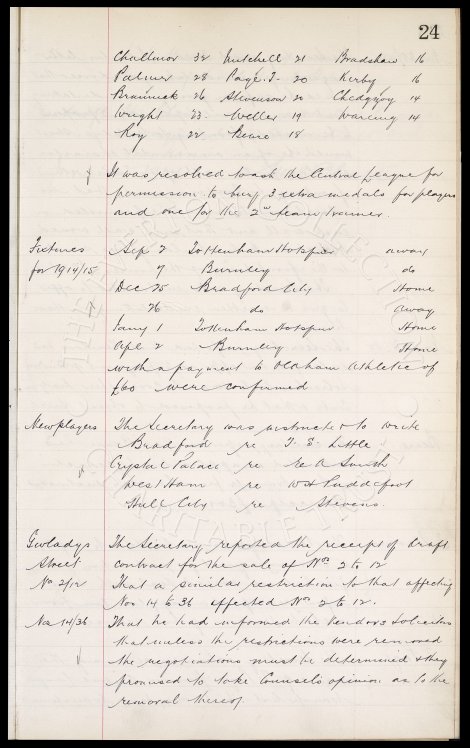 24
Challinor 32 Mitchell 21 Bradshaw 16
Palmer 28 Page. T. 20 Kirby 16
Bramnick 26 Stevenson 20 Chedgzoy 14
Wright 23 Weller 19 Wareing 14
Roy 22 Beare 18
It was resolved to ask the Central League for
permission to buy 3 extra medals for players
and one for the 2nd team trainer.
Fixtures for 1914/15
Sep 2 Tottenham Hotspur away
7 Burnley do
Dec 25 Bradford City Home
26 do away
Jany 1 Tottenham Hotspur Home
Apl 2 Burnley Home
with a payment to Oldham Athletic of
£60 were confirmed
New players The Secretary was instructed to write
Bradford re T. E. Little
Crystal Palace re A Smith
West Ham re W H Puddefoot
Hull City re Stevens.
Gwladys The Secretary reported the receipt of draft
Street contract for the sale of Nos 2 to 12
No 2/12 That a similar restriction to that affecting
Nos 14 to 36 affected Nos 2 to 12.
Nos 14/36 That he had informed the Vendors Solicitors
that unless the restrictions were removed
the negotiations must be determined & they
promised to take Counsels opinion as to the
removal thereof.
THE EVERTON COLLECTION
CHARITABLE TRUST